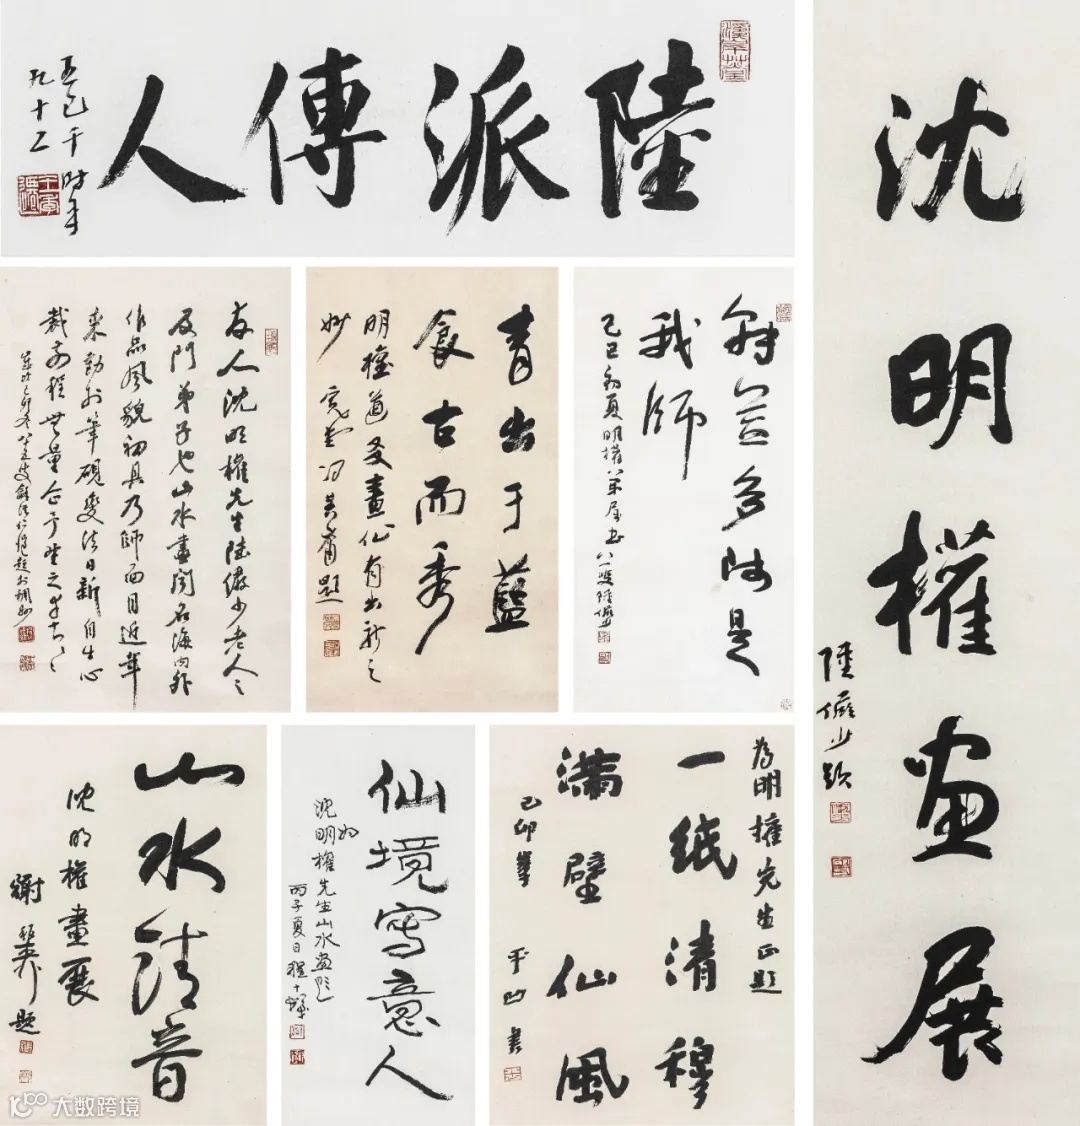 陸派傳人
时年
九十二
沈明權画展
陸儼少題
轉益多師是
我師
己巳初夏明權屬书八一叟陸儼少
青出于藍
食古而秀
明權道友畫仙有出新之
妙 冯其庸題
友人沈明權先生陸儼少老人之
及門弟子也山水畫聞名海内外
作品風貌初具乃師面目近年
來勤於筆硯變法日新自生心
裁前程無量企予望之
為明權先生正題
一紙清穆
满壁仙風
己卯 平凹書
仙境寫意人
为沈明權先生山水画题
丙子夏日程十髮
山水清音
沈明權畫展
謝稚柳題
大数跨境